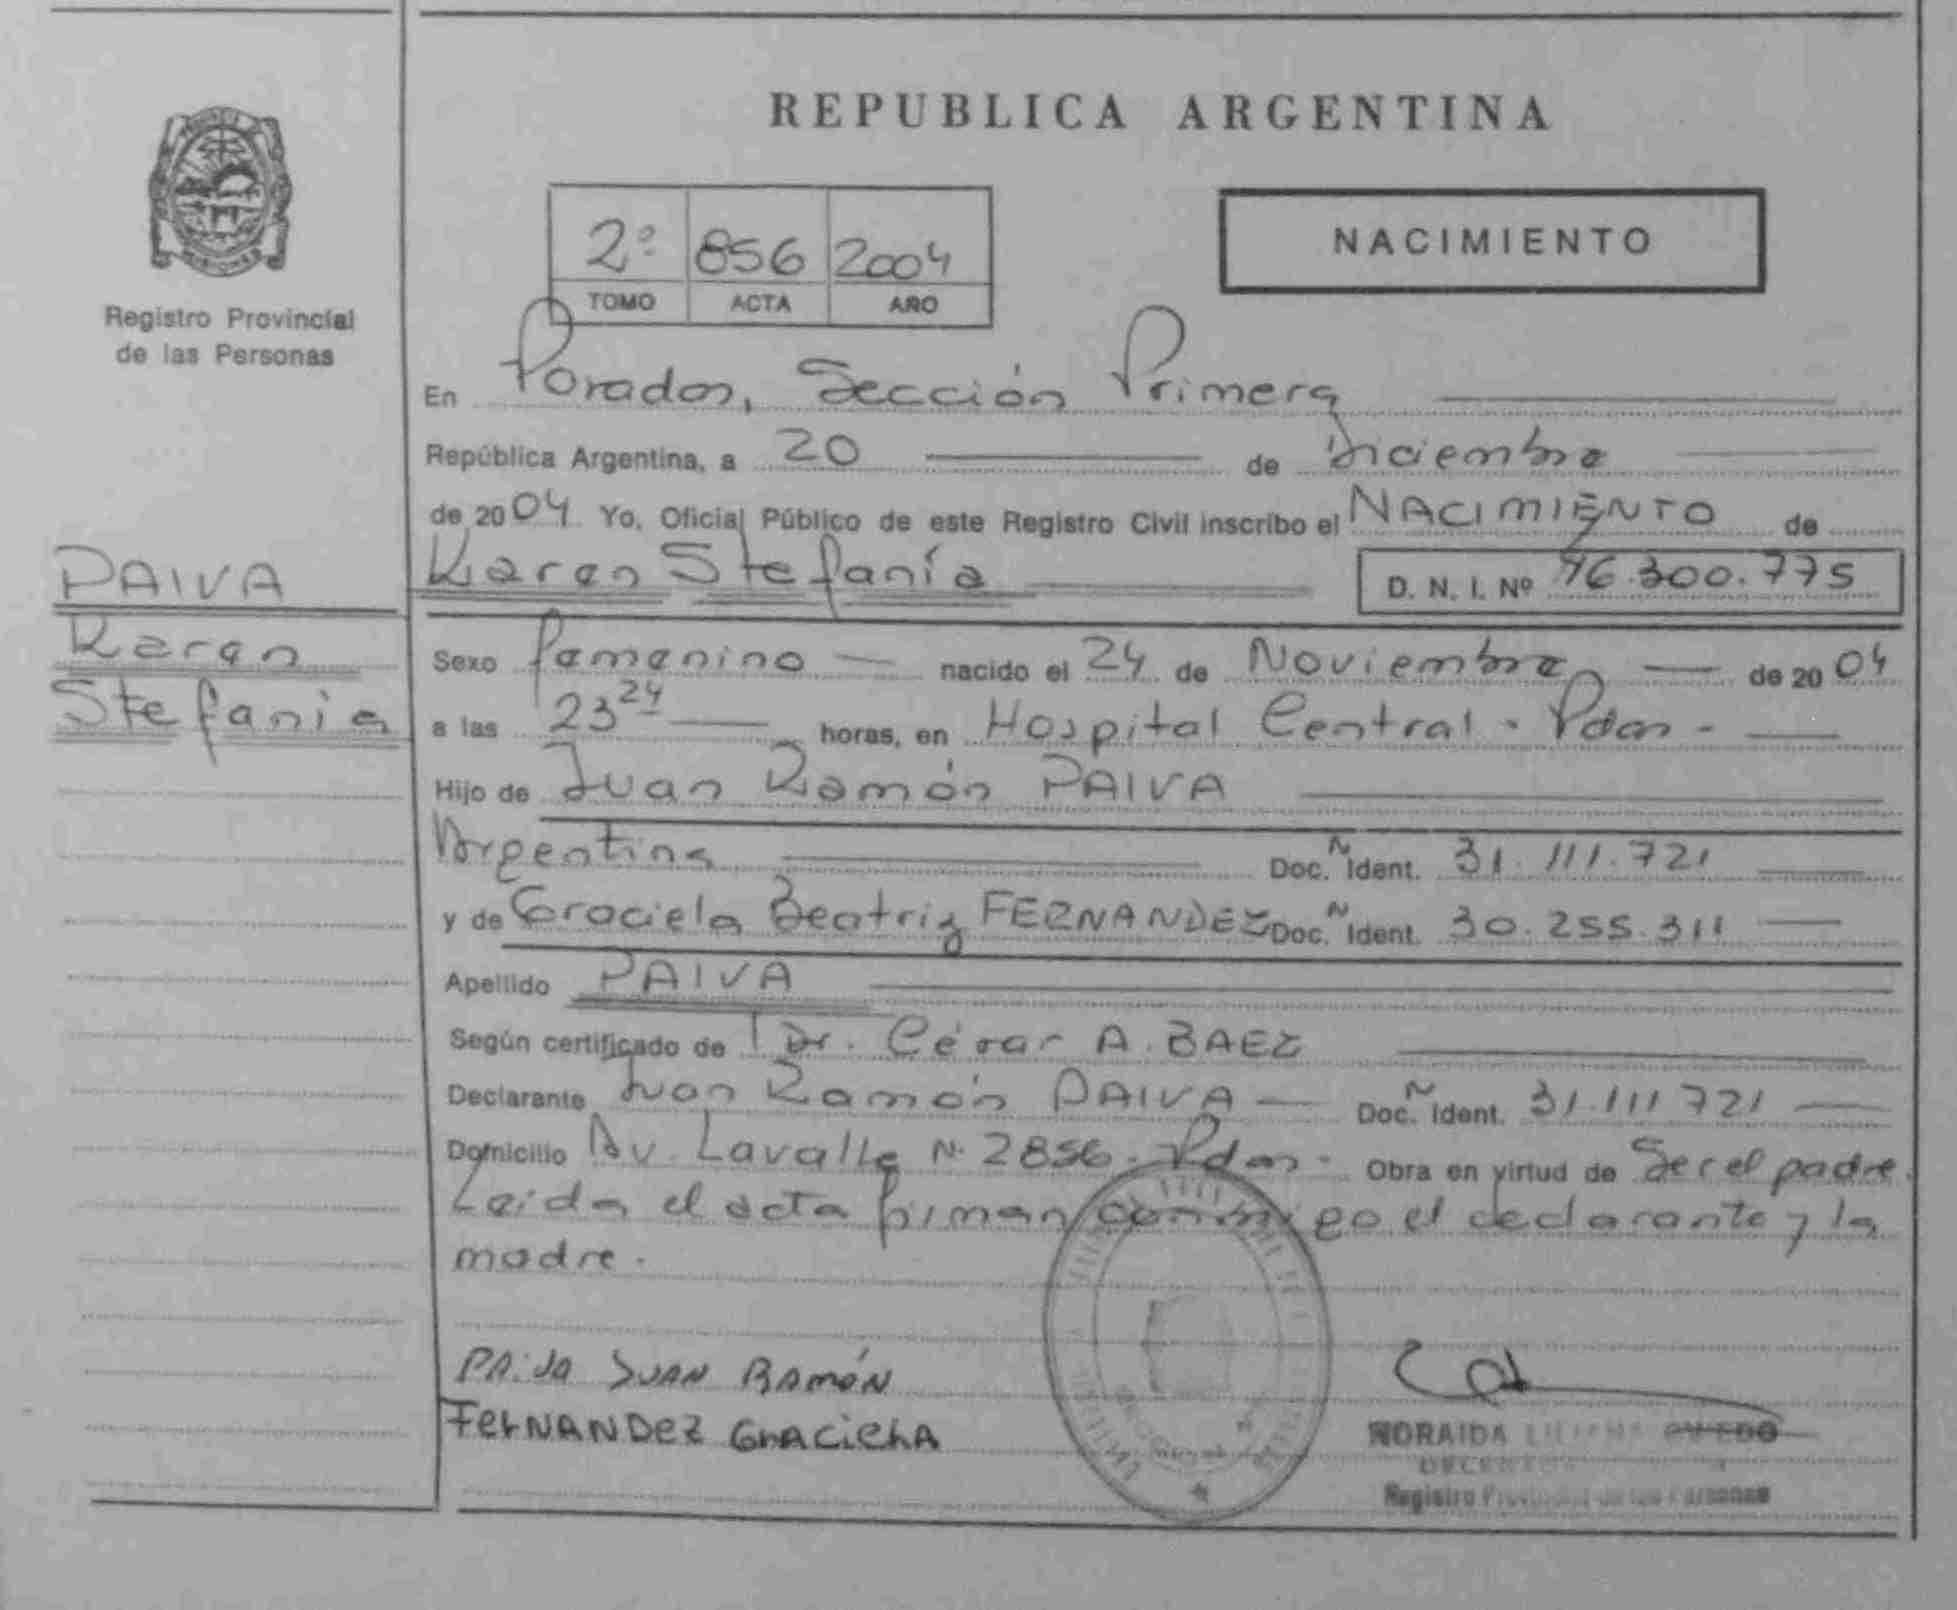 REPUBLICA ARGENTINA
Registro Provincial
de las Personas
2º 856 2004
TOMO ACTA AÑO
NACIMIENTO
En Posadas, Sección Primera
República Argentina, a 20 de Diciembre
de 2004 Yo, Oficial Público de este Registro Civil inscribo el NACIMIENTO de
Karen Stefanía D. N. I. Nº 46.300.775
PAIVA
Karen
Stefanía
Sexo femenino nacido el 24 de Noviembre de 2004
a las 23 24 horas, en Hospital Central - Pdas -
Hijo de Juan Ramón PAIVA
Argentina Doc. N Ident. 31.111.721
y de Graciela Beatriz FERNANDEZ Doc. N Ident. 30.255.311
Apellido PAIVA
Según certificado de Dr. César A. BAEZ
Declarante Juan Ramón PAIVA Doc. N Ident. 31.111.721
Domicilio Av. Lavalle N. 2856 - Pdas - Obra en virtud de Ser el padre.
Leída el acta firman conmigo el declarante y la
madre.
PAiva JUAN RAMÓN
FERNANDEZ GRACIELA
NORAIDA LILIANA OVIEDO
Registro Provincial de las Personas